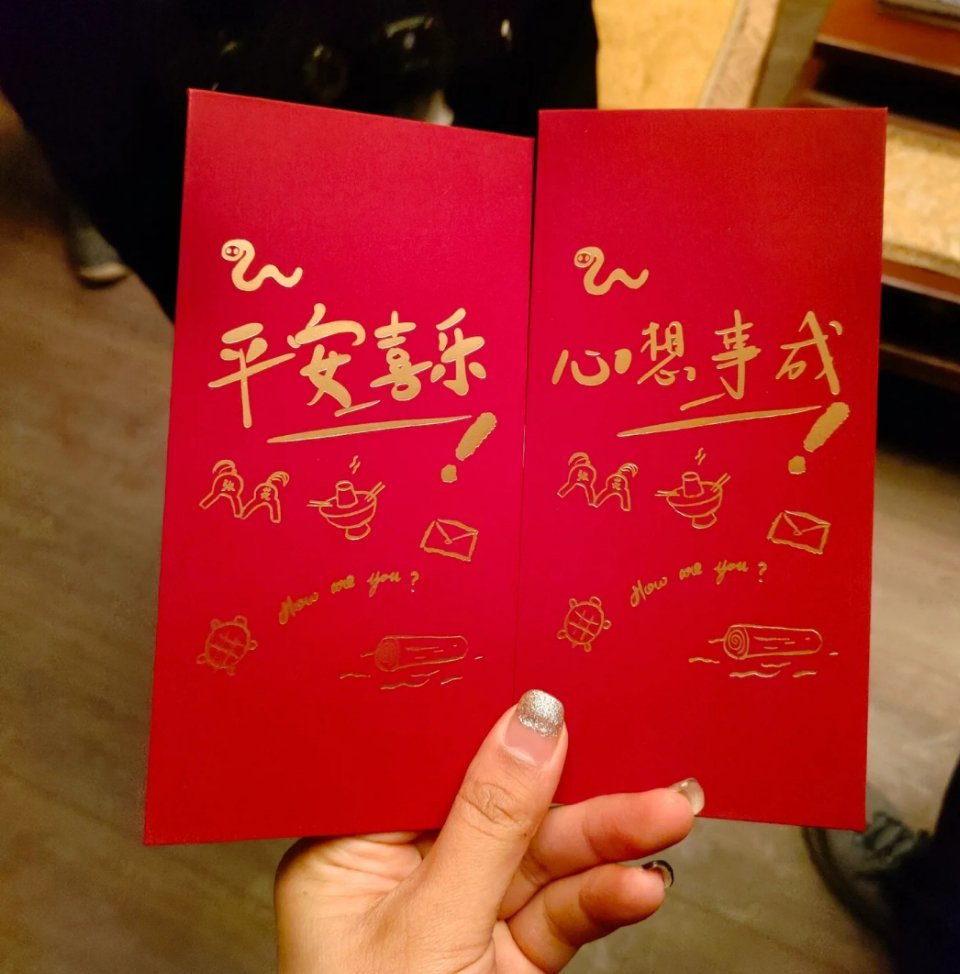 平安喜乐
How are you?
心想事成
How are you?